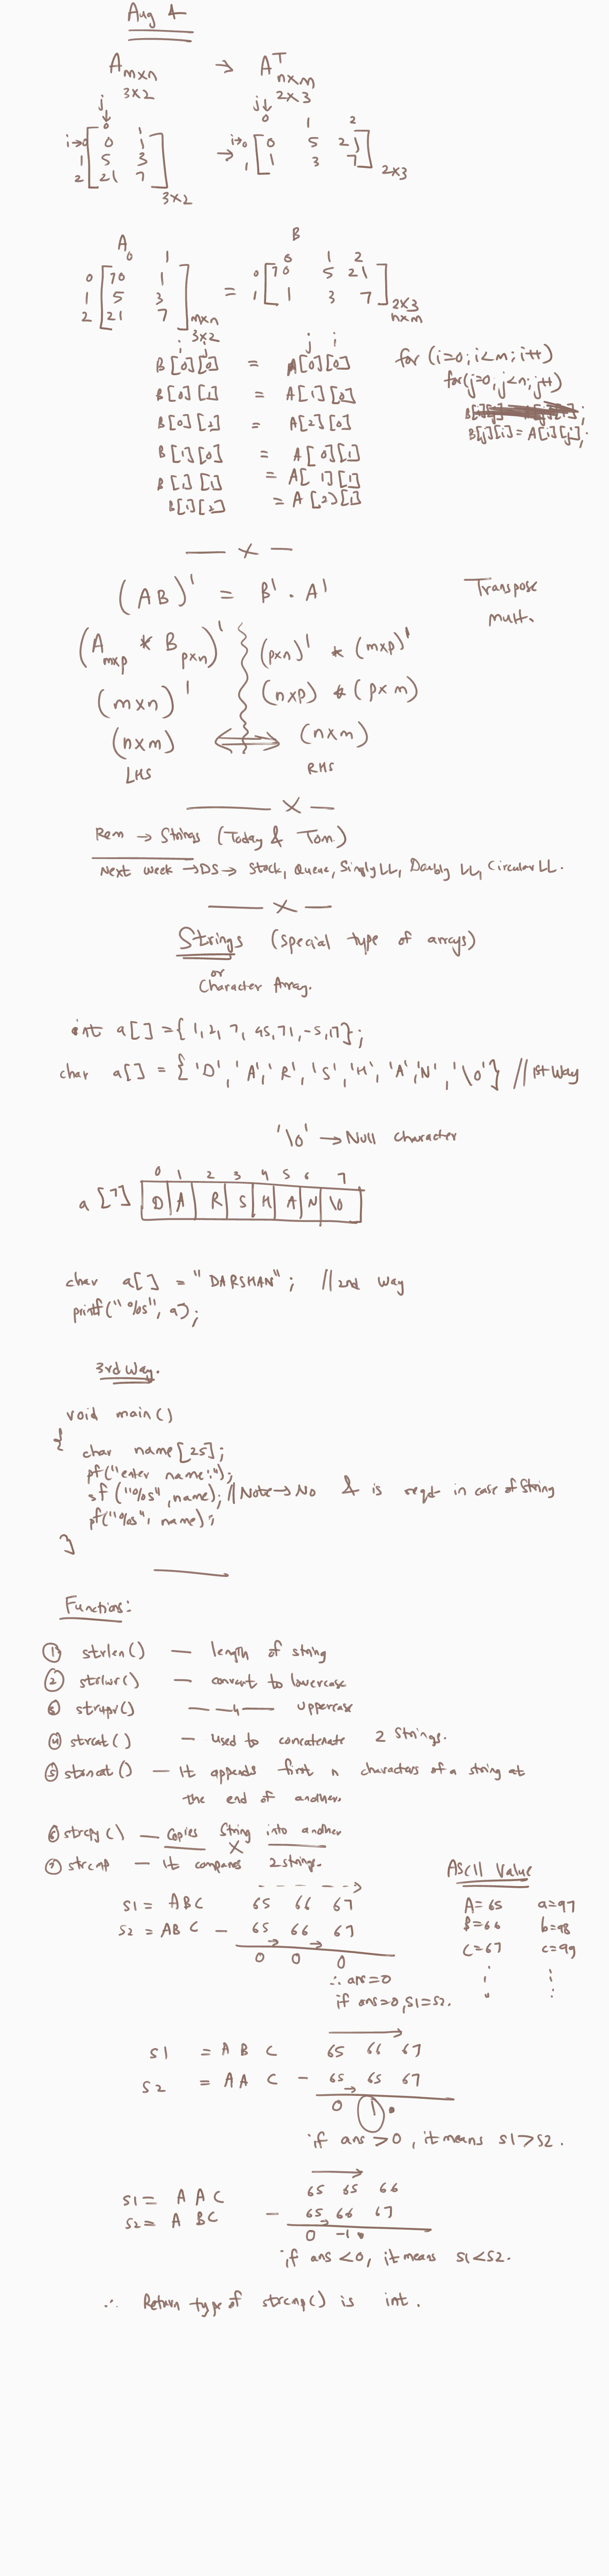 Aug 4
A m×n → A^T n×m
3×2 2×3
j↓ j↓
0 1 0 1 2
i→0 0 1 i→0 0 5 21
1 5 3 → 1 1 3 7
2 21 7 2×3
3×2
A B
0 1 0 1 2
0 70 1 0 70 5 21
1 5 3 = 1 1 3 7
2 21 7 m×n 2×3
3×2 n×m
i j j i
B[0][0] = A[0][0] for (i=0; i<m; i++)
B[0][1] = A[1][0] for(j=0; j<n; j++)
B[0][2] = A[2][0] B[j][i] = A[i][j];
B[1][0] = A[0][1]
B[1][1] = A[1][1]
B[1][2] = A[2][1]
— x —
(AB)' = B' . A' Transpose
mult.
(A m×p * B p×n)' (p×n)' * (m×p)'
(m×n)' (n×p) * (p×m)
(n×m) ⟺ (n×m)
LHS RHS
— x —
Rem → Strings (Today & Tom)
Next week → DS → Stack, Queue, Singly LL, Doubly LL, Circular LL.
— x —
Strings (special type of arrays)
or
Character Array.
int a[] = { 1, 2, 7, 45, 71, -5, 17};
char a[] = { 'D', 'A', 'R', 'S', 'H', 'A', 'N', '\0'} // 1st Way
'\0' → Null character
0 1 2 3 4 5 6 7
a [7] D A R S H A N \0
char a[] = "DARSHAN"; // 2nd Way
printf("%s", a);
3rd Way.
void main()
{
char name[25];
pf("enter name:");
sf ("%s", name); // Note → No & is reqd in case of String
pf("%s", name);
}
Functions:
① strlen() — length of string
② strlwr() — convert to lowercase
③ strupr() — —〃— uppercase
④ strcat() — used to concatenate 2 Strings.
⑤ strncat() — It appends first n characters of a string at
the end of another.
⑥ strcpy() — Copies String into another
x
⑦ strcmp — It compares 2 strings. ASCII Value
S1 = ABC 65 66 67 A=65 a=97
S2 = ABC – 65 66 67 B=66 b=98
0 0 0 C=67 c=99
∴ ans=0
if ans=0, S1=S2.
S1 = A B C 65 66 67
S2 = A A C – 65 65 67
0 1.
if ans >0, it means S1>S2.
S1 = A A C 65 65 66
S2 = A BC – 65 66 67
0 -1.
if ans <0, it means S1<S2.
∴ Return type of strcmp() is int.